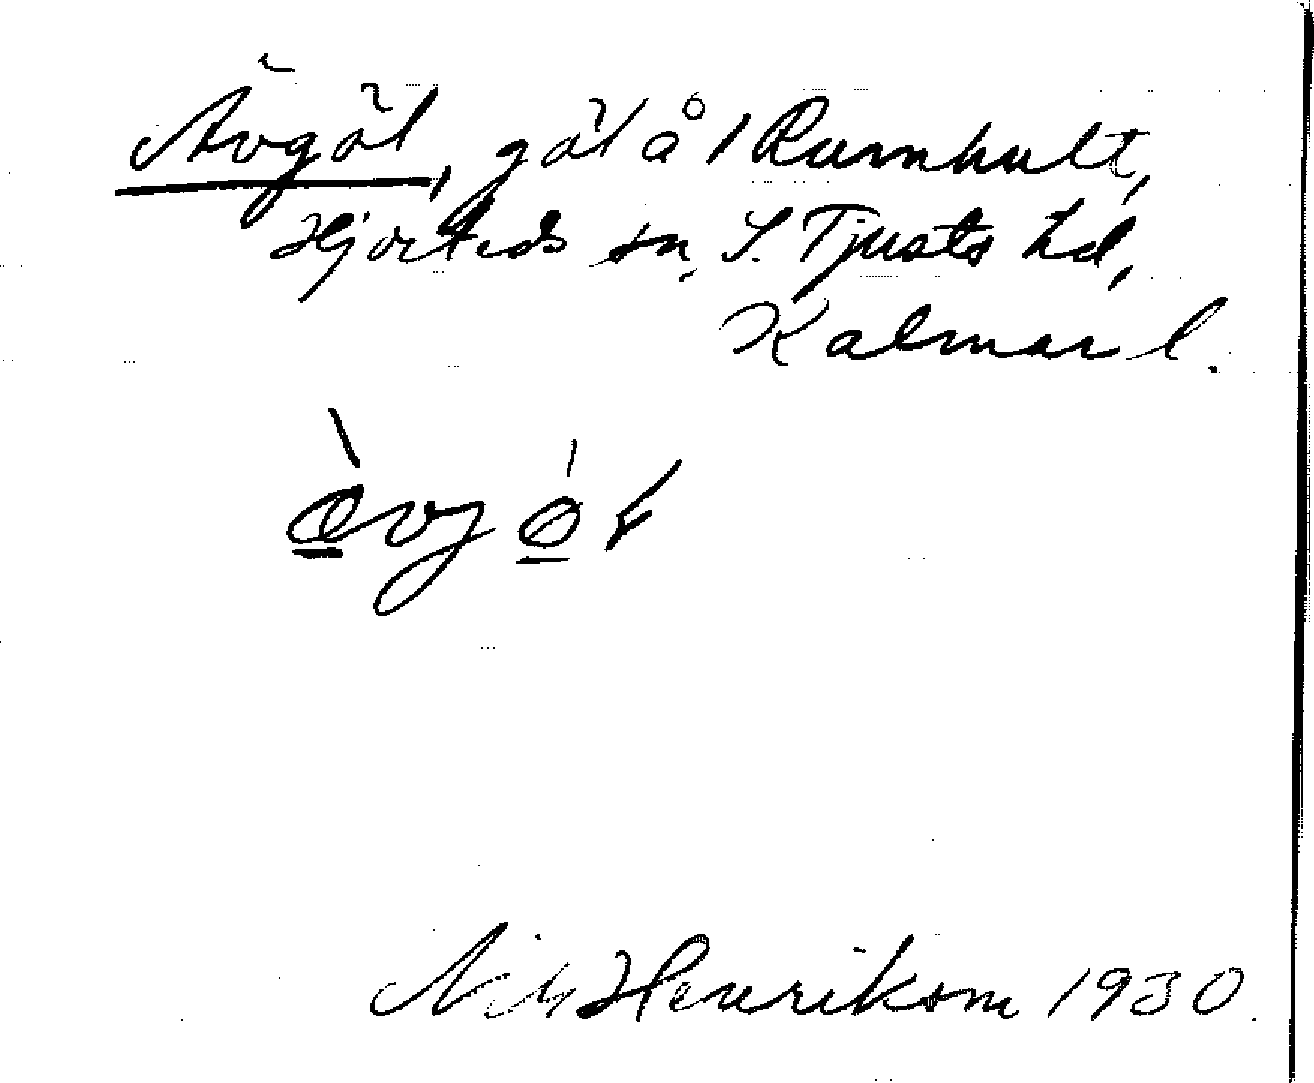 Ävgöl, göl å 1 Rumhult,
Hjorteds sn, S. Tjusts hd,
Kalmar l.
Nils Henriksson 1930.